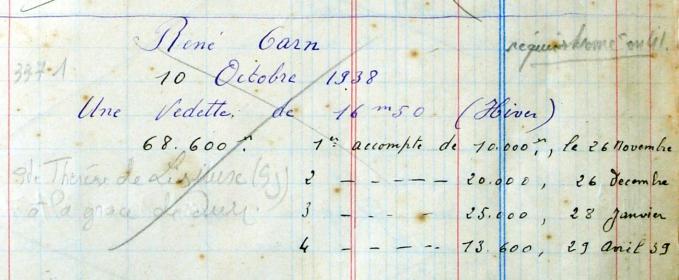 René Carn
réquisitionné en 41.
337-1
10 Octobre 1938
Une Vedette de 16 m 50 (Hiver)
68.600 frs. 1er accompte de 10.000 frs, le 26 Novembre
Ste Thérèse de Lisieux (Sj)
2 - - - - - 20.000, 26 Decembre
à la grace de Dieu.
3 - - - - - 25.000, 28 Janvier
4 - - - - - 13.600, 29 Avril 39